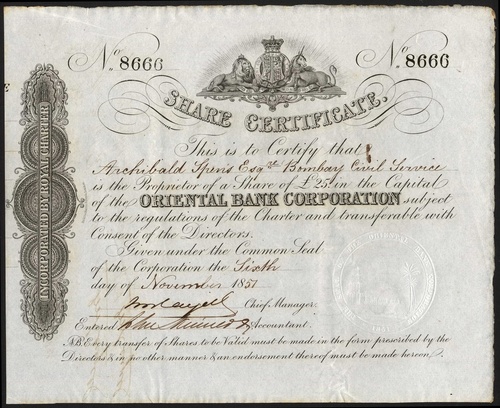 No. 8666 No. 8666
SHARE CERTIFICATE.
INCORPORATED BY ROYAL CHARTER
This is to Certify that
Archibald Spens Esqre Bombay Civil Service
is the Proprietor of a Share of £25 in the Capital
of the ORIENTAL BANK CORPORATION subject
to the regulations of the Charter and transferable with
Consent of the Directors.
Given under the Common Seal
of the Corporation the Sixth
day of November 1851
Chief Manager.
Entered Accountant.
N.B. Every transfer of Shares to be Valid must be made in the form prescribed by the
Directors & in no other manner & an endorsement thereof must be made hereon.